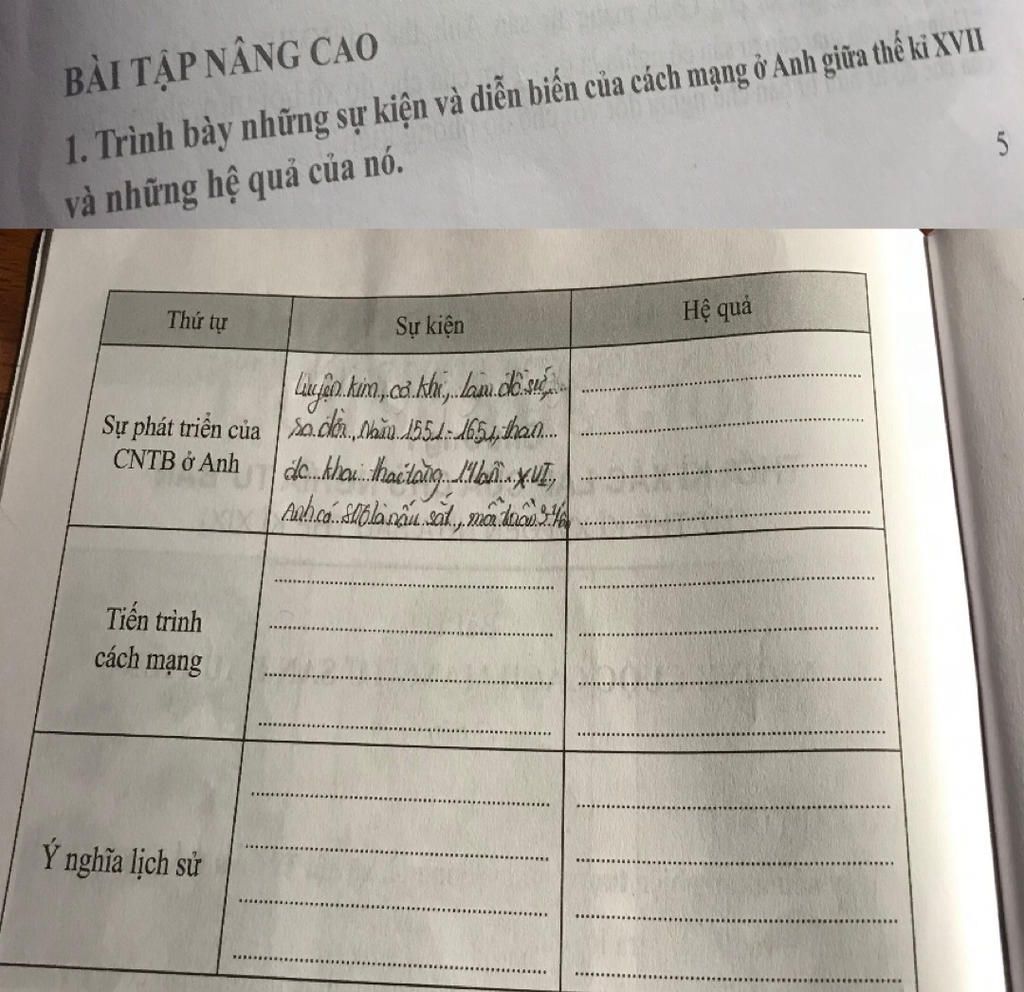 BÀI TẬP NÂNG CAO
1. Trình bày những sự kiện và diễn biến của cách mạng ở Anh giữa thế kỉ XVII
và những hệ quả của nó.
5
Thứ tự
Sự kiện
Hệ quả
Sự phát triển của
CNTB ở Anh
Luyện kim, cơ khí, làm đồ sứ,
ra đời, Năm 1551-1651, than
đc khai thác tăng 14 lần. XVI,
Anh có 800 lò nấu sắt, mỗi tuần
Tiến trình
cách mạng
Ý nghĩa lịch sử